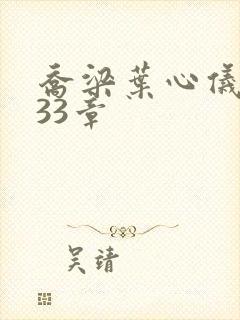 喬梁葉心儀
33章
吴靖